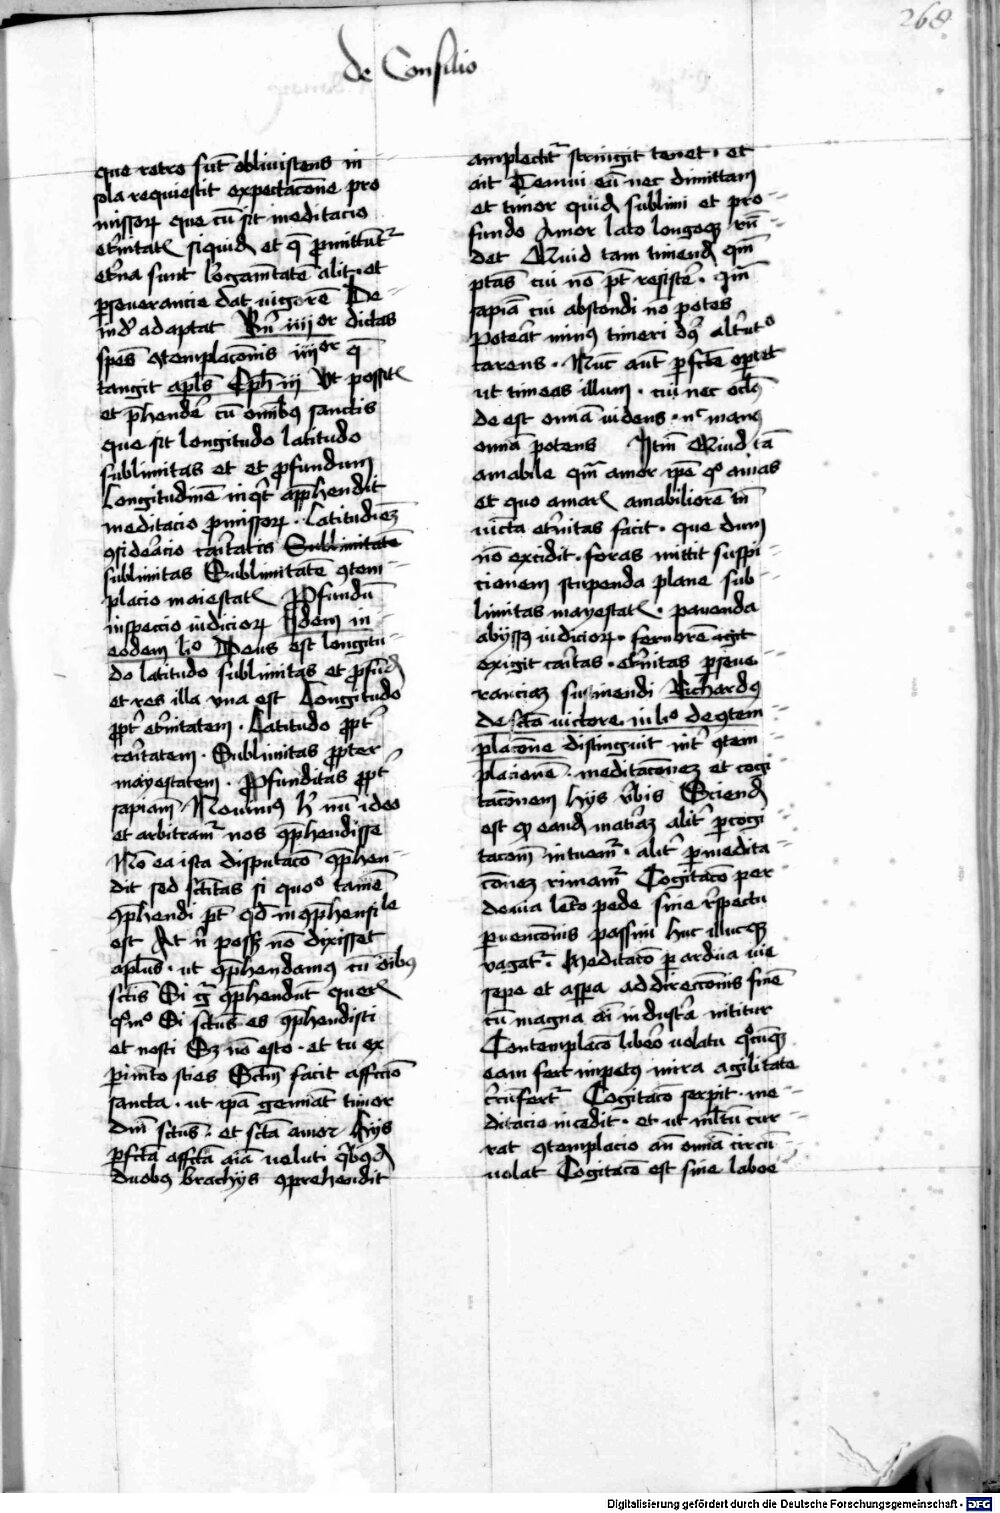 268
de Consilio
que retro sūt obliviscens in
sola requiescit expectacōne pro
missoꝝ que cū sit meditacio
et̄nitatꝭ siquid et q̄ ꝓmittūtᷣ
et̄na sunt lōgamtatē alit · et
ꝑseverancie dat vigorē De
ind̉ adaptat Bn̄ iiijor dictas
spēs ꝯtemplacōnis iiijor q̄
tangit apl̄s Eph iij Vt possitꝭ
et p̄hendē cū om̄ibꝰ sanctis
que sit longitudo latitudo
sublimitas et et ꝓfundum
Longitudinē inqt apphendit
meditacio ꝓmissoꝝ · Latitudiez
ꝯsideracio caritatis Sublimitatē
sublimitas Sublimitatē ꝯtem
placio maiestatꝭ Ꝓfundū
inspeccio iudicioꝝ Idem in
eodem li° Deus est longitu
do latitudo sublimitas et ꝓfund
et res illa vna est Longitudo
ꝓpt̉ et̉nitatem · Latitudo ꝓpt̉
caritatem · Sublimitas ꝓpter
mayestatem · Ꝓfunditas ꝓpt̉
sapiam Novimꝰ h̄ nū ideo
et arbitramᷣ nos ꝯphendisse
Nō ea ista disputacō ꝯphen
dit sed sctitas si quo° tamē
ꝯphendi pt̄ qd̄ inꝯphensile
est At n̄ possꝫ nō dixisset
aplūs · ut ꝯphendamꝰ cū oībꝰ
sctīs Si gͦ ꝯphendūt querꝭ
qͦmͦ Si sctūs es ꝯphendisti
et nosti Sꝫ nō esto · et tu ex
ꝑimto scies Sctm̄ facit affcciō
sancta · ut ip̄a gemiāt timor
dn̄i sctūs · et sctā amor Hijs
ꝑfctā affctā aīā veluti qͥbꝰd
duobꝰ brachijs ꝯprehendit
amplectitᷣ stringit tenet · et
ait Tenui eū nec dimittam
et timor quid sublimi et pro
fundo Amor lato longoqꝫ rn̄
det Quid tam timend qm̄
ptās cui nō pt̄ resistē · qm̄
sapiā cui abscondi nō potes
Poterāt minꝰ timeri dꝰ alt̉ut°
carens · Nūc aut̄ ꝑfctē oportet
ut timeas illum · cui nec oclꝰ
de est omīa videns · nᶜ manꝰ
omīa potens Itm̄ Quid tā
amabile qm̄ amor ip̄e qͦ amas
et quo amarꝭ amabiliorē tn̄
iūcta et̉nitas facit · que dum
nō excidit · foras mittit suspi
cionem stupenda plane sub
limitas mayestatꝭ · pavenda
abyssꝰ iudicioꝝ · fervorē agit
exigit caritas · et̉nitas ꝑseve
rancian sustinendi Richardꝰ
de sctō victore in li° de ꝯtem
placōne distinguit int̉ ꝯtem
placionē · meditacōneꝫ et cogi
tacōnem hijs v̉bis Sciend
est qꝫ eand mat̉iaꝫ alit̉ ꝑ cogi
tacōm intuemᷣ · alit̉ ꝑ medita
cōneꝫ rimamᷣ Cogitacō per
devia lēto pede sine rspectu
ꝑvencōnis passim huc illucqꝫ
vagatᷣ · Meditacō ꝑ ardua vie
sepe et asꝑa ad direccōnis finē
cū magna aī industᷓa nititur
Contemplacō libeō volatu qͦcūqꝫ
eam fert impetꝰ mira agilitate
circūfertᷣ Cogitacō serpit · me
ditacio incedit · et ut ml̄tū cur
rat ꝯtemplacio aū omīa circū
volat Cogitacō est sine laboē
Digitalisierung gefördert durch die Deutsche Forschungsgemeinschaft · DFG